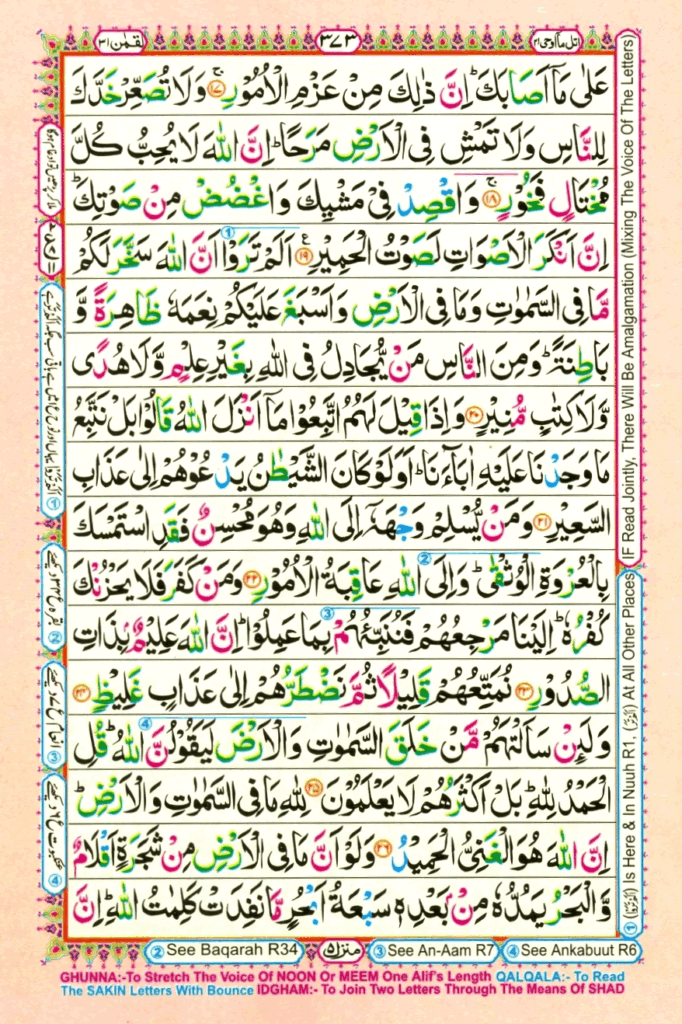 لقمٰن ۳۱
۳۷۳
اتل ماۤ اوحی ۲۱
عَلٰى مَاۤ اَصَابَكَ ؕ اِنَّ ذٰلِكَ مِنْ عَزْمِ الْاُمُوْرِ ۚ﴿۱۷﴾ وَلَا تُصَعِّرْ خَدَّكَ
لِلنَّاسِ وَلَا تَمْشِ فِى الْاَرْضِ مَرَحًا ؕ اِنَّ اللّٰهَ لَا يُحِبُّ كُلَّ
مُخْتَالٍ فَخُوْرٍ ۚ﴿۱۸﴾ وَاقْصِدْ فِىْ مَشْيِكَ وَاغْضُضْ مِنْ صَوْتِكَ ؕ
اِنَّ اَنْكَرَ الْاَصْوَاتِ لَصَوْتُ الْحَمِيْرِ ﴿۱۹﴾ اَلَمْ تَرَوْا اَنَّ اللّٰهَ سَخَّرَ لَكُمْ
مَّا فِى السَّمٰوٰتِ وَمَا فِى الْاَرْضِ وَاَسْبَغَ عَلَيْكُمْ نِعَمَهٗ ظَاهِرَةً وَّ
بَاطِنَةً ؕ وَمِنَ النَّاسِ مَنْ يُّجَادِلُ فِى اللّٰهِ بِغَيْرِ عِلْمٍ وَّلَا هُدًى
وَّلَا كِتٰبٍ مُّنِيْرٍ ﴿۲۰﴾ وَاِذَا قِيْلَ لَهُمُ اتَّبِعُوْا مَاۤ اَنْزَلَ اللّٰهُ قَالُوْا بَلْ نَتَّبِعُ
مَا وَجَدْنَا عَلَيْهِ اٰبَآءَنَا ؕ اَوَلَوْ كَانَ الشَّيْطٰنُ يَدْعُوْهُمْ اِلٰى عَذَابِ
السَّعِيْرِ ﴿۲۱﴾ وَمَنْ يُّسْلِمْ وَجْهَهٗۤ اِلَى اللّٰهِ وَهُوَ مُحْسِنٌ فَقَدِ اسْتَمْسَكَ
بِالْعُرْوَةِ الْوُثْقٰى ؕ وَاِلَى اللّٰهِ عَاقِبَةُ الْاُمُوْرِ ﴿۲۲﴾ وَمَنْ كَفَرَ فَلَا يَحْزُنْكَ
كُفْرُهٗ ؕ اِلَيْنَا مَرْجِعُهُمْ فَنُنَبِّئُهُمْ بِمَا عَمِلُوْا ؕ اِنَّ اللّٰهَ عَلِيْمٌۢ بِذَاتِ
الصُّدُوْرِ ﴿۲۳﴾ نُمَتِّعُهُمْ قَلِيْلًا ثُمَّ نَضْطَرُّهُمْ اِلٰى عَذَابٍ غَلِيْظٍ ﴿۲۴﴾
وَلَئِنْ سَاَلْتَهُمْ مَّنْ خَلَقَ السَّمٰوٰتِ وَالْاَرْضَ لَيَقُوْلُنَّ اللّٰهُ ؕ قُلِ
الْحَمْدُ لِلّٰهِ ؕ بَلْ اَكْثَرُهُمْ لَا يَعْلَمُوْنَ ﴿۲۵﴾ لِلّٰهِ مَا فِى السَّمٰوٰتِ وَالْاَرْضِ ؕ
اِنَّ اللّٰهَ هُوَ الْغَنِىُّ الْحَمِيْدُ ﴿۲۶﴾ وَلَوْ اَنَّ مَا فِى الْاَرْضِ مِنْ شَجَرَةٍ اَقْلَامٌ
وَّالْبَحْرُ يَمُدُّهٗ مِنْۢ بَعْدِهٖ سَبْعَةُ اَبْحُرٍ مَّا نَفِدَتْ كَلِمٰتُ اللّٰهِ ؕ اِنَّ
IF Read Jointly, There Will Be Amalgamation (Mixing The Voice Of The Letters)
① (اَلَمْ تَرَوْا) Is Here & In Nuuh R1, (اَلَمْ تَرَ) At All Other Places
② بقرہ ع ۳۴ دیکھئے
③ انعام ع ۷ دیکھئے
④ عنکبوت ع ۶ دیکھئے
② See Baqarah R34
منزل ۵
③ See An-Aam R7
④ See Ankabuut R6
GHUNNA:-To Stretch The Voice Of NOON Or MEEM One Alif's Length QALQALA:- To Read
The SAKIN Letters With Bounce IDGHAM:- To Join Two Letters Through The Means Of SHAD